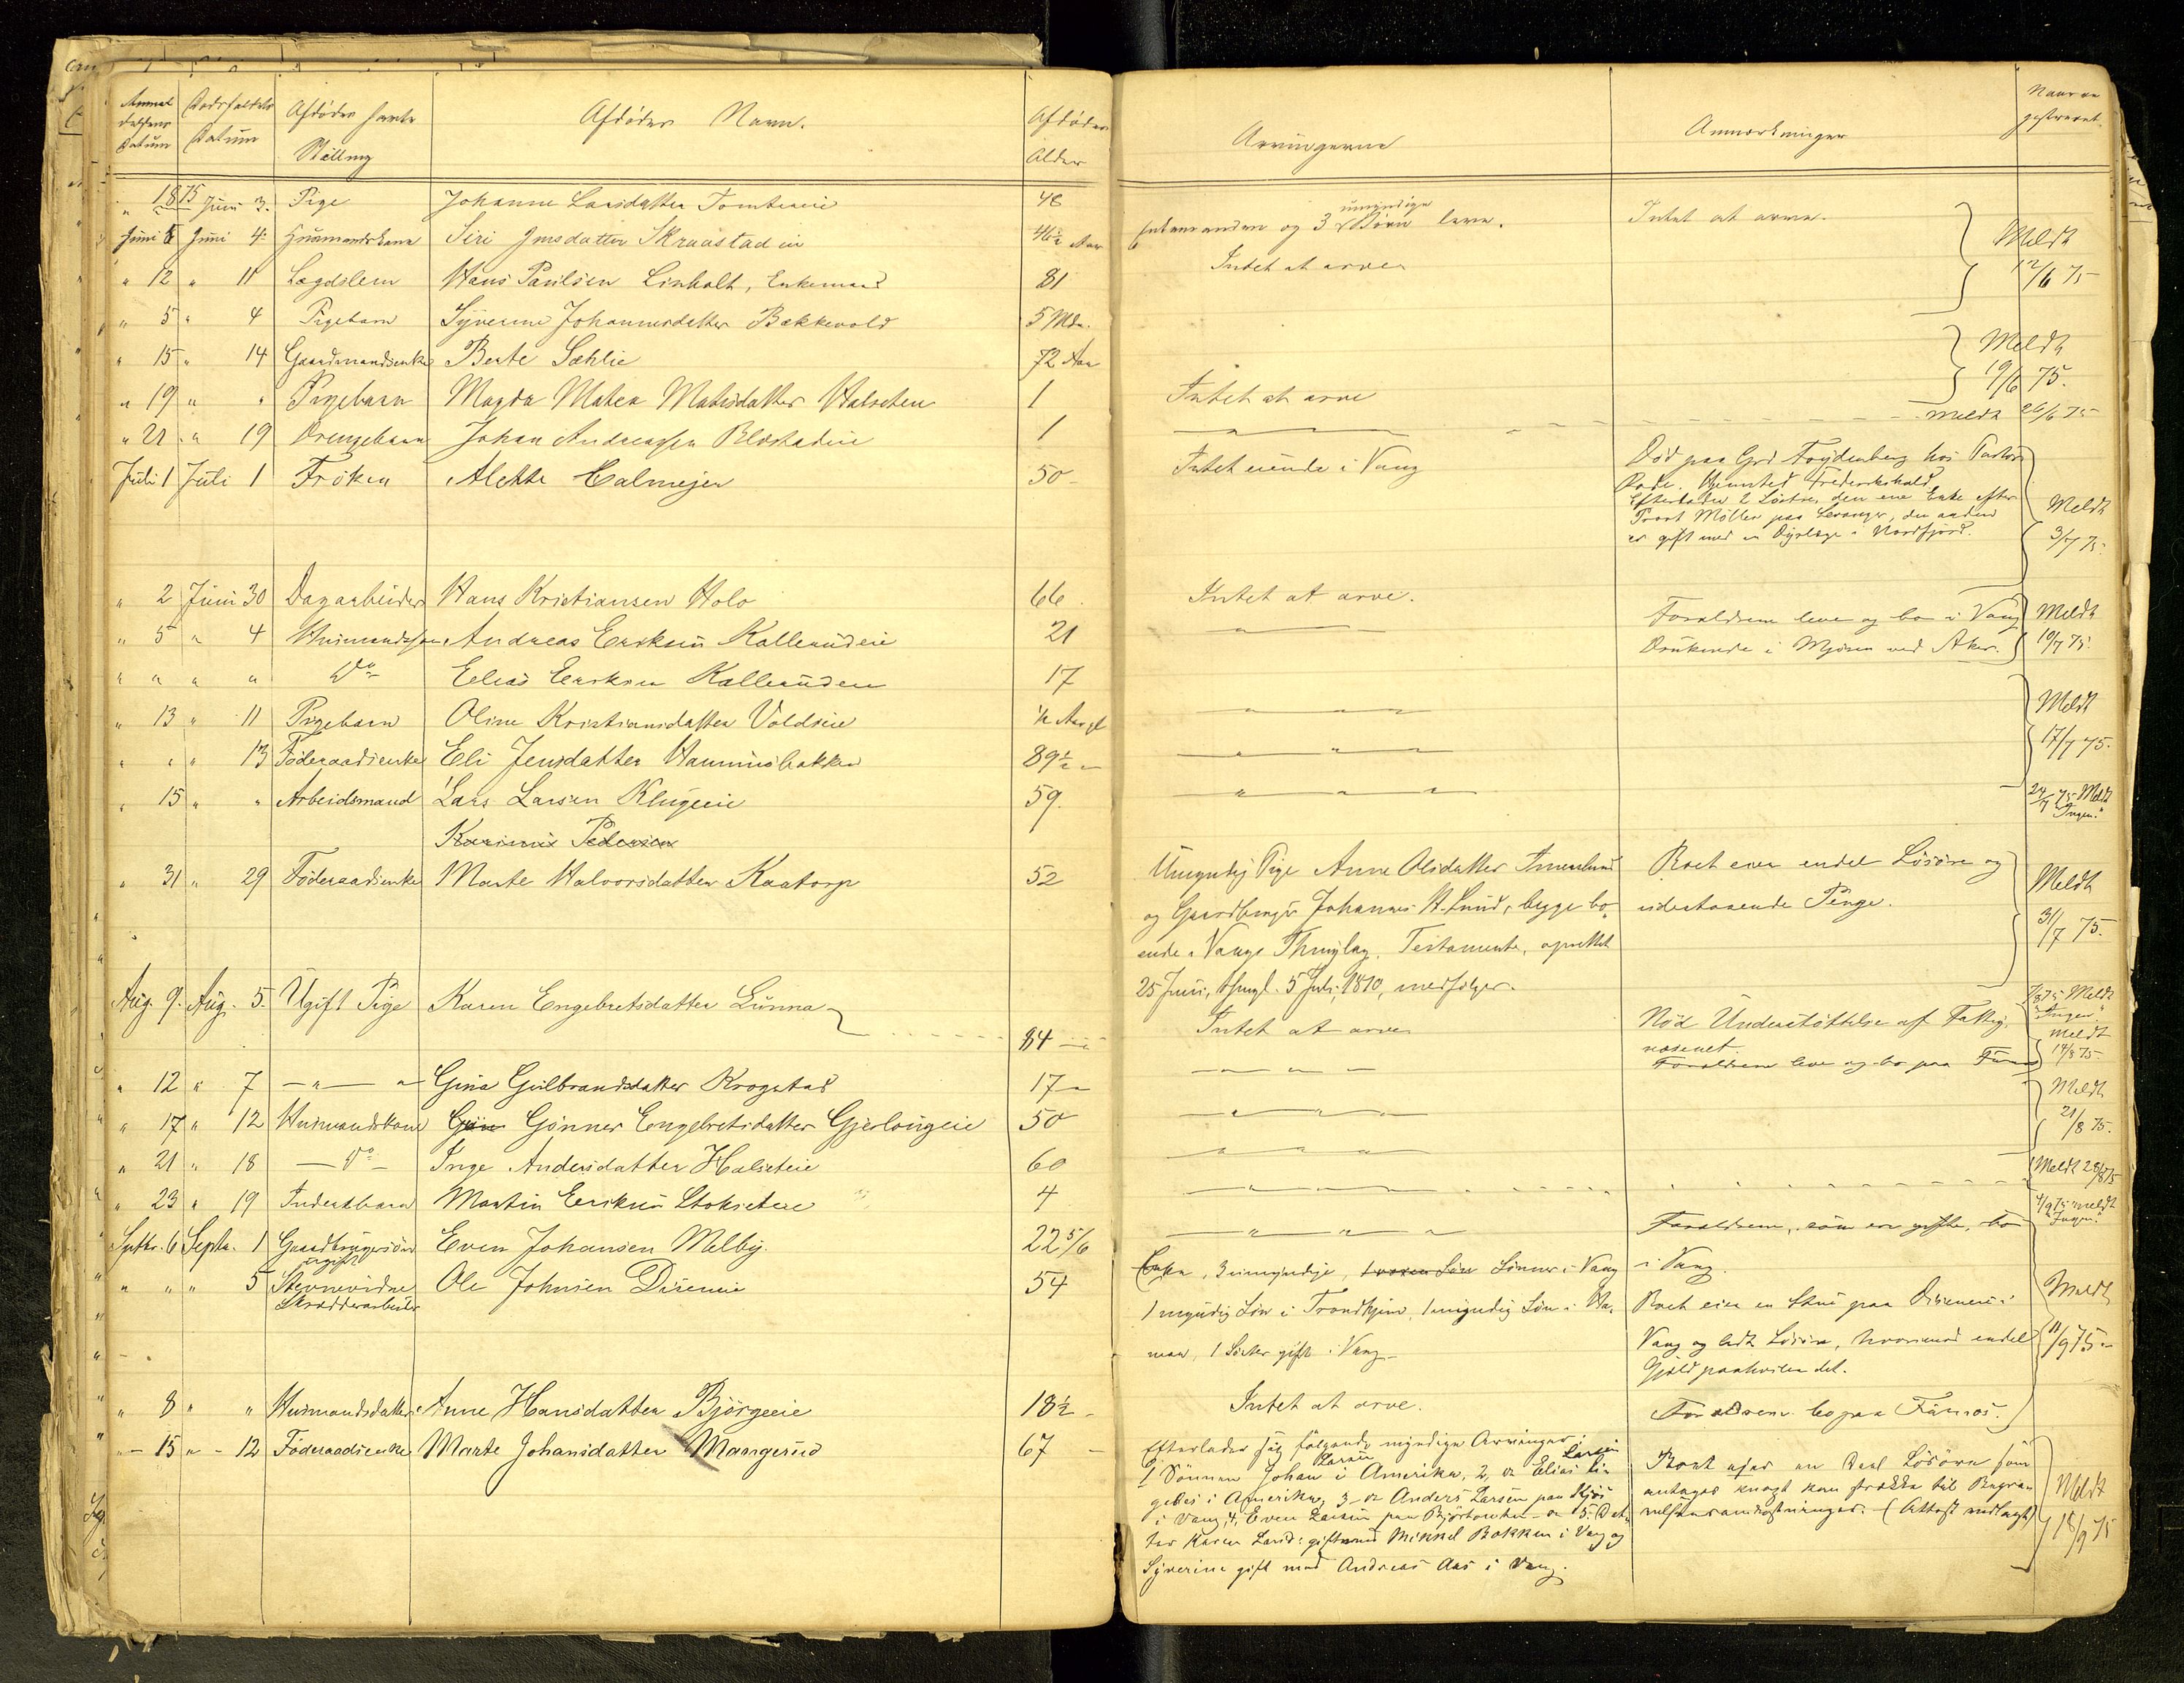 Anmel delsens Datum | Dødsfaldets Datum | Afdødes Stilling | Afdødes Navn. | Afdødes Alder | Arvingerne | Anmærkninger | Naar
1875
" Juni 3. Pige Johanne Larsdatter Tomtereie 48
Juni 5 Juni 4. Husmandskone Siri Jensdatter Skraastadeie 46½ Aar Enkemanden og 3 umyndige Børn leve. Intet at arve.
" 12 " 11 Lægdslem Hans Paulsen Linholt, Enkemand 81 Intet at arve Meldt 12/6 75
" 5 " 4 Pigebarn Syverine Johannesdatter Bækkevold 5 Mdr.
" 15 " 14 Gaardmandsenke Berte Sæhlie 72 Aar Meldt 19/6 75.
" 19 " " Pigebarn Magda Matea Matisdatter Halseten 1 Intet at arve
" 21 " 19 Drengebarn Johan Andreassen Blæstadeie 1 – " – " – meldt 26/6 75
Juli 1 Juli 1 Frøken Alette Calmejer 50 Intet eiende i Vang Død paa Grd Frydenberg hos Pastor
Rode. Hjemsted Frederikshald
Efterlader 2 Søstre, den ene Enke efter
Provst Møller paa Levanger, den anden
er gift med en Dyrlæge i Nordfjord. Meldt 3/7 75.
" 2 Juni 30 Dagarbeider Hans Kristiansen Holo 66. Intet at arve.
" 5 " 4 Husmandssøn Andreas Eriksen Kallerudeie 21 – " – Forældrene leve og bo i Vang Meldt
" " " " Do Elias Eriksen Kallerudeie 17 Druknede i Mjøsen ved Aker. 10/7 75.
" 13 " 11 Pigebarn Oline Kristiansdatter Voldseie ½ Aar gl – " – " – Meldt
" " " 13 Føderaadsenke Eli Jensdatter Hammersbakken 89½ – " – " – 17/7 75.
" 15 " " Arbeidsmand Lars Larsen Klugeeie 59. – " – " – 24/7 75 Meldt "Ingen."
Karinus Pedersen
" 31 " 29 Føderaadsenke Marte Halvorsdatter Kaatorp 52 Umyndig Pige Anne Olsdatter
og Gaardbruger Johannes H. Lund, begge bo-
ende i Vangs Thinglag. Testamente, oprettet
25 Juni, thingl. 5 Juli 1870, medfølger.
Boet eier endel Løsøre og
udestaaende Penge. Meldt 31/7 75.
Aug. 9. Aug. 5. Ugift Pige Karen Engebretsdatter Lunna 84 Intet at arve Nød Understøttelse af Fattig-
væsenet. 7/8 75 Meldt "Ingen"
" 12 " 7 – " – " Gina Gulbrandsdatter Krogstad 17 – " – " – Forældrene leve og bo paa Furnes meldt 14/8 75
" 17 " 12 Husmandskone Gjønner Engebretsdatter Gjerlougeie 50 – " – " – Meldt
" 21 " 18 – Do – Inge Andersdatter Halseteie 60 " " " 21/8 75.
" 23 " 19 Inderstbarn Martin Eriksen Stokseteie 4 – " – " – Meldt 28/8 75
Septbr. 6 Septbr. 1 Gaardbrugersøn ugift Even Johansen Melby. 22 5/6 – " – " – Forældrene, som ere gifte, bo
i Vang. 4/9 75 meldt "Ingen".
" " " 5 Stevnevidne Skrædderarbeider Ole Johnsen Diseneie 54 Enke, 3 umyndige, 1 voxen Søn Sønner i Vang
1 myndig Søn i Trondhjem, 1 myndig Søn i Ha-
mar, 1 Datter gift i Vang.
Boet eier en Stue paa Diseneie i
Vang og lidt Løsøre, hvorimod endel
Gjæld paahviler det. Meldt 11/9 75
" 8 " " Husmandsdatter Anne Hansdatter Bjørgeeie 18½ Intet at arve. Forældrene bo paa Furnes.
" 15 " 12 Føderaadsenke Marte Johansdatter Maangerud 67 Efterlader sig følgende myndige Arvinger:
1 Sønnen Johan Larsen i Amerika, 2, Elias Larsen li-
gedes i Amerika, 3 Anders Larsen paa
i Vang, 4, Even Larsen paa 5. Dat-
ter Karen Larsd: gift med Mikkel Bakken i Vang og
Syverine gift med Andreas Aas i Vang.
Boet ejer en Deel Løsøre som
antages knapt kan strække til Begra-
velsesomkostninger. (Attest medlagt) Meldt 18/9 75